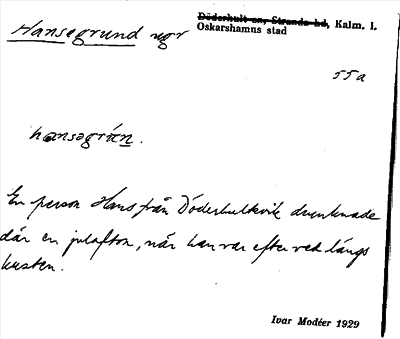 Hansegrund ngr
Döderhult sn, Stranda hd, Kalm. l.
Oskarshamns stad
55a
hansegrɯn.
En person Hans från Döderhultsvik drunknade
där en julafton, når han var efter ved längs
kusten.
Ivar Modéer 1929